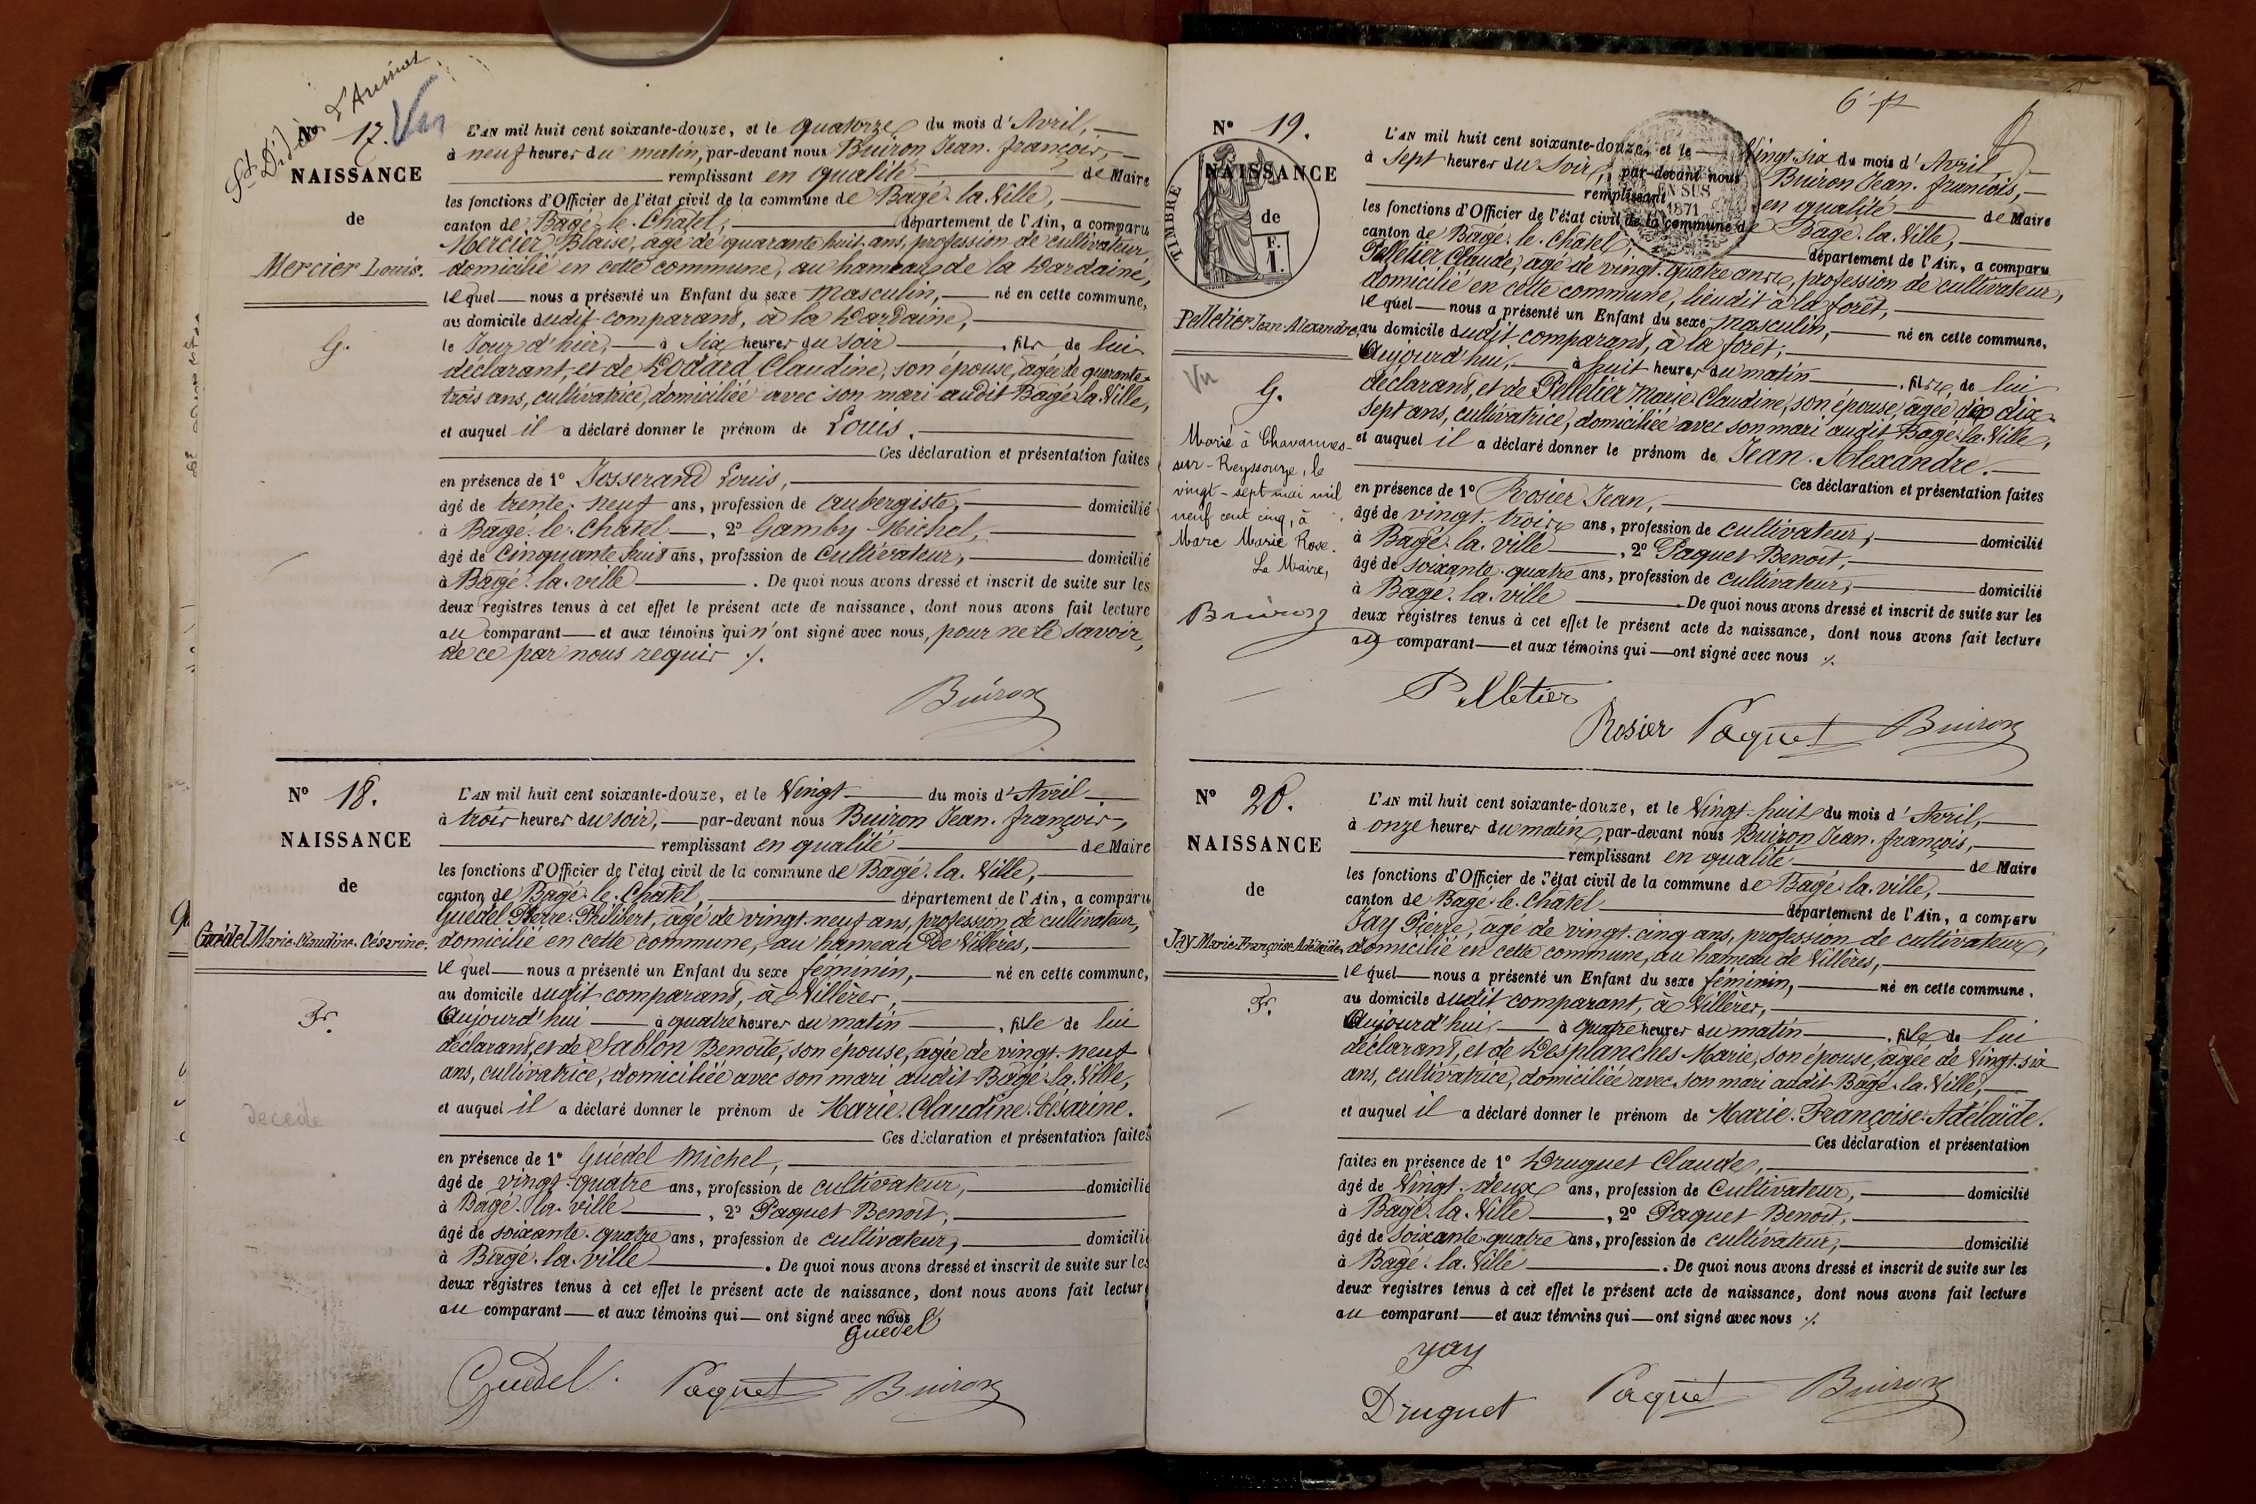 St Didier d'Aussiat
Nº 17. Vu
NAISSANCE
de
Mercier Louis.
G.
L'AN mil huit cent soixante-douze, et le quatorze du mois d'Avril,
à neuf heures du matin, par-devant nous Buiron Jean-françois,
remplissant en qualité de Maire
les fonctions d'Officier de l'état civil de la commune de Bagé-la-Ville,
canton de Bagé-le-Châtel, département de l'Ain, a comparu
Mercier Blaise, agé de quarante huit ans, profession de cultivateur,
domicilié en cette commune, au hameau de la Dardaine,
lequel nous a présenté un Enfant du sexe masculin, né en cette commune,
au domicile dudit comparant, à la Dardaine,
le Jour d'hier, à six heures du soir, fils de lui
déclarant, et de Dodard Claudine, son épouse, agée de quarante-
trois ans, cultivatrice, domiciliée avec son mari audit Bagé-la-Ville,
et auquel il a déclaré donner le prénom de Louis.
Ces déclaration et présentation faites
en présence de 1º Josserand Louis,
âgé de trente-neuf ans, profession de aubergiste, domicilié
à Bagé-le-Châtel, 2º Gamby Michel,
âgé de cinquante huit ans, profession de cultivateur, domicilié
à Bagé-la-ville. De quoi nous avons dressé et inscrit de suite sur les
deux registres tenus à cet effet le présent acte de naissance, dont nous avons fait lecture
au comparant et aux témoins qui n'ont signé avec nous, pour ne le savoir,
de ce par nous requis ./.
Buiron
Nº 18.
NAISSANCE
de
Guédel Marie-Claudine-Césarine.
Fr.
decédée
L'AN mil huit cent soixante-douze, et le Vingt du mois d'Avril
à trois heures du soir, par-devant nous Buiron Jean-françois,
remplissant en qualité de Maire
les fonctions d'Officier de l'état civil de la commune de Bagé-la-Ville,
canton de Bagé-le-Châtel, département de l'Ain, a comparu
Guédel Pierre-Philibert, agé de vingt-neuf ans, profession de cultivateur,
domicilié en cette commune, au hameau de Villères,
lequel nous a présenté un Enfant du sexe féminin, né en cette commune,
au domicile dudit comparant, à Villères,
Aujourd'hui à quatre heures du matin, fille de lui
déclarant, et de Sablon Benoîte, son épouse, agée de vingt-neuf
ans, cultivatrice, domiciliée avec son mari audit Bagé-la-Ville,
et auquel il a déclaré donner le prénom de Marie-Claudine-Césarine.
Ces déclaration et présentation faites
en présence de 1º Guédel Michel,
âgé de vingt-quatre ans, profession de cultivateur, domicilié
à Bagé-la-ville, 2º Paquet Benoît,
âgé de soixante-quatre ans, profession de cultivateur, domicilié
à Bagé-la-ville. De quoi nous avons dressé et inscrit de suite sur les
deux registres tenus à cet effet le présent acte de naissance, dont nous avons fait lecture
au comparant et aux témoins qui ont signé avec nous
Guedel
Guédel. Paquet Buiron
6e
Nº 19.
NAISSANCE
de
TIMBRE
EN SUS
1871
Pelletier Jean-Alexandre,
Vu
G.
Marié à Chavannes-
sur-Reyssouze, le
vingt-sept mai mil
neuf cent cinq, à
Marc Marie Rose.
Le Maire,
Buiron
L'AN mil huit cent soixante-douze, et le Vingt-six du mois d'Avril,
à sept heures du soir, par-devant nous Buiron Jean-françois,
remplissant en qualité de Maire
les fonctions d'Officier de l'état civil de la commune de Bagé-la-Ville,
canton de Bagé-le-Châtel, département de l'Ain, a comparu
Pelletier Claude, agé de vingt-quatre ans, profession de cultivateur,
domicilié en cette commune, lieudit à la forêt,
lequel nous a présenté un Enfant du sexe masculin, né en cette commune,
au domicile dudit comparant, à la forêt,
Aujourd'hui, à huit heures du matin, fils de lui
déclarant, et de Pelletier Marie Claudine, son épouse, agée de dix-
sept ans, cultivatrice, domiciliée avec son mari audit Bagé-la-Ville,
et auquel il a déclaré donner le prénom de Jean-Alexandre.
Ces déclaration et présentation faites
en présence de 1º Rosier Jean,
âgé de vingt-trois ans, profession de cultivateur, domicilié
à Bagé-la-ville, 2º Paquet Benoît,
âgé de soixante-quatre ans, profession de cultivateur, domicilié
à Bagé-la-ville. De quoi nous avons dressé et inscrit de suite sur les
deux registres tenus à cet effet le présent acte de naissance, dont nous avons fait lecture
au comparant et aux témoins qui ont signé avec nous ./.
Pelletier
Rosier Paquet Buiron
Nº 20.
NAISSANCE
de
Jay Marie-Françoise-Adélaïde,
Fr.
L'AN mil huit cent soixante-douze, et le Vingt-huit du mois d'Avril,
à onze heures du matin, par-devant nous Buiron Jean-françois,
remplissant en qualité de Maire
les fonctions d'Officier de l'état civil de la commune de Bagé-la-ville,
canton de Bagé-le-Châtel département de l'Ain, a comparu
Jay Pierre, agé de vingt-cinq ans, profession de cultivateur,
domicilié en cette commune, au hameau de Villères,
lequel nous a présenté un Enfant du sexe féminin, né en cette commune,
au domicile dudit comparant, à Villères,
Aujourd'hui, à quatre heures du matin, fille de lui
déclarant, et de Desplanches Marie, son épouse, agée de Vingt-six
ans, cultivatrice, domiciliée avec son mari audit Bagé-la-Ville,
et auquel il a déclaré donner le prénom de Marie-Françoise-Adélaïde.
Ces déclaration et présentation
faites en présence de 1º Druguet Claude,
âgé de Vingt-deux ans, profession de Cultivateur, domicilié
à Bagé-la-Ville, 2º Paquet Benoît,
âgé de soixante-quatre ans, profession de cultivateur, domicilié
à Bagé-la-Ville. De quoi nous avons dressé et inscrit de suite sur les
deux registres tenus à cet effet le présent acte de naissance, dont nous avons fait lecture
au comparant et aux témoins qui ont signé avec nous ./.
yay
Druguet Paquet Buiron